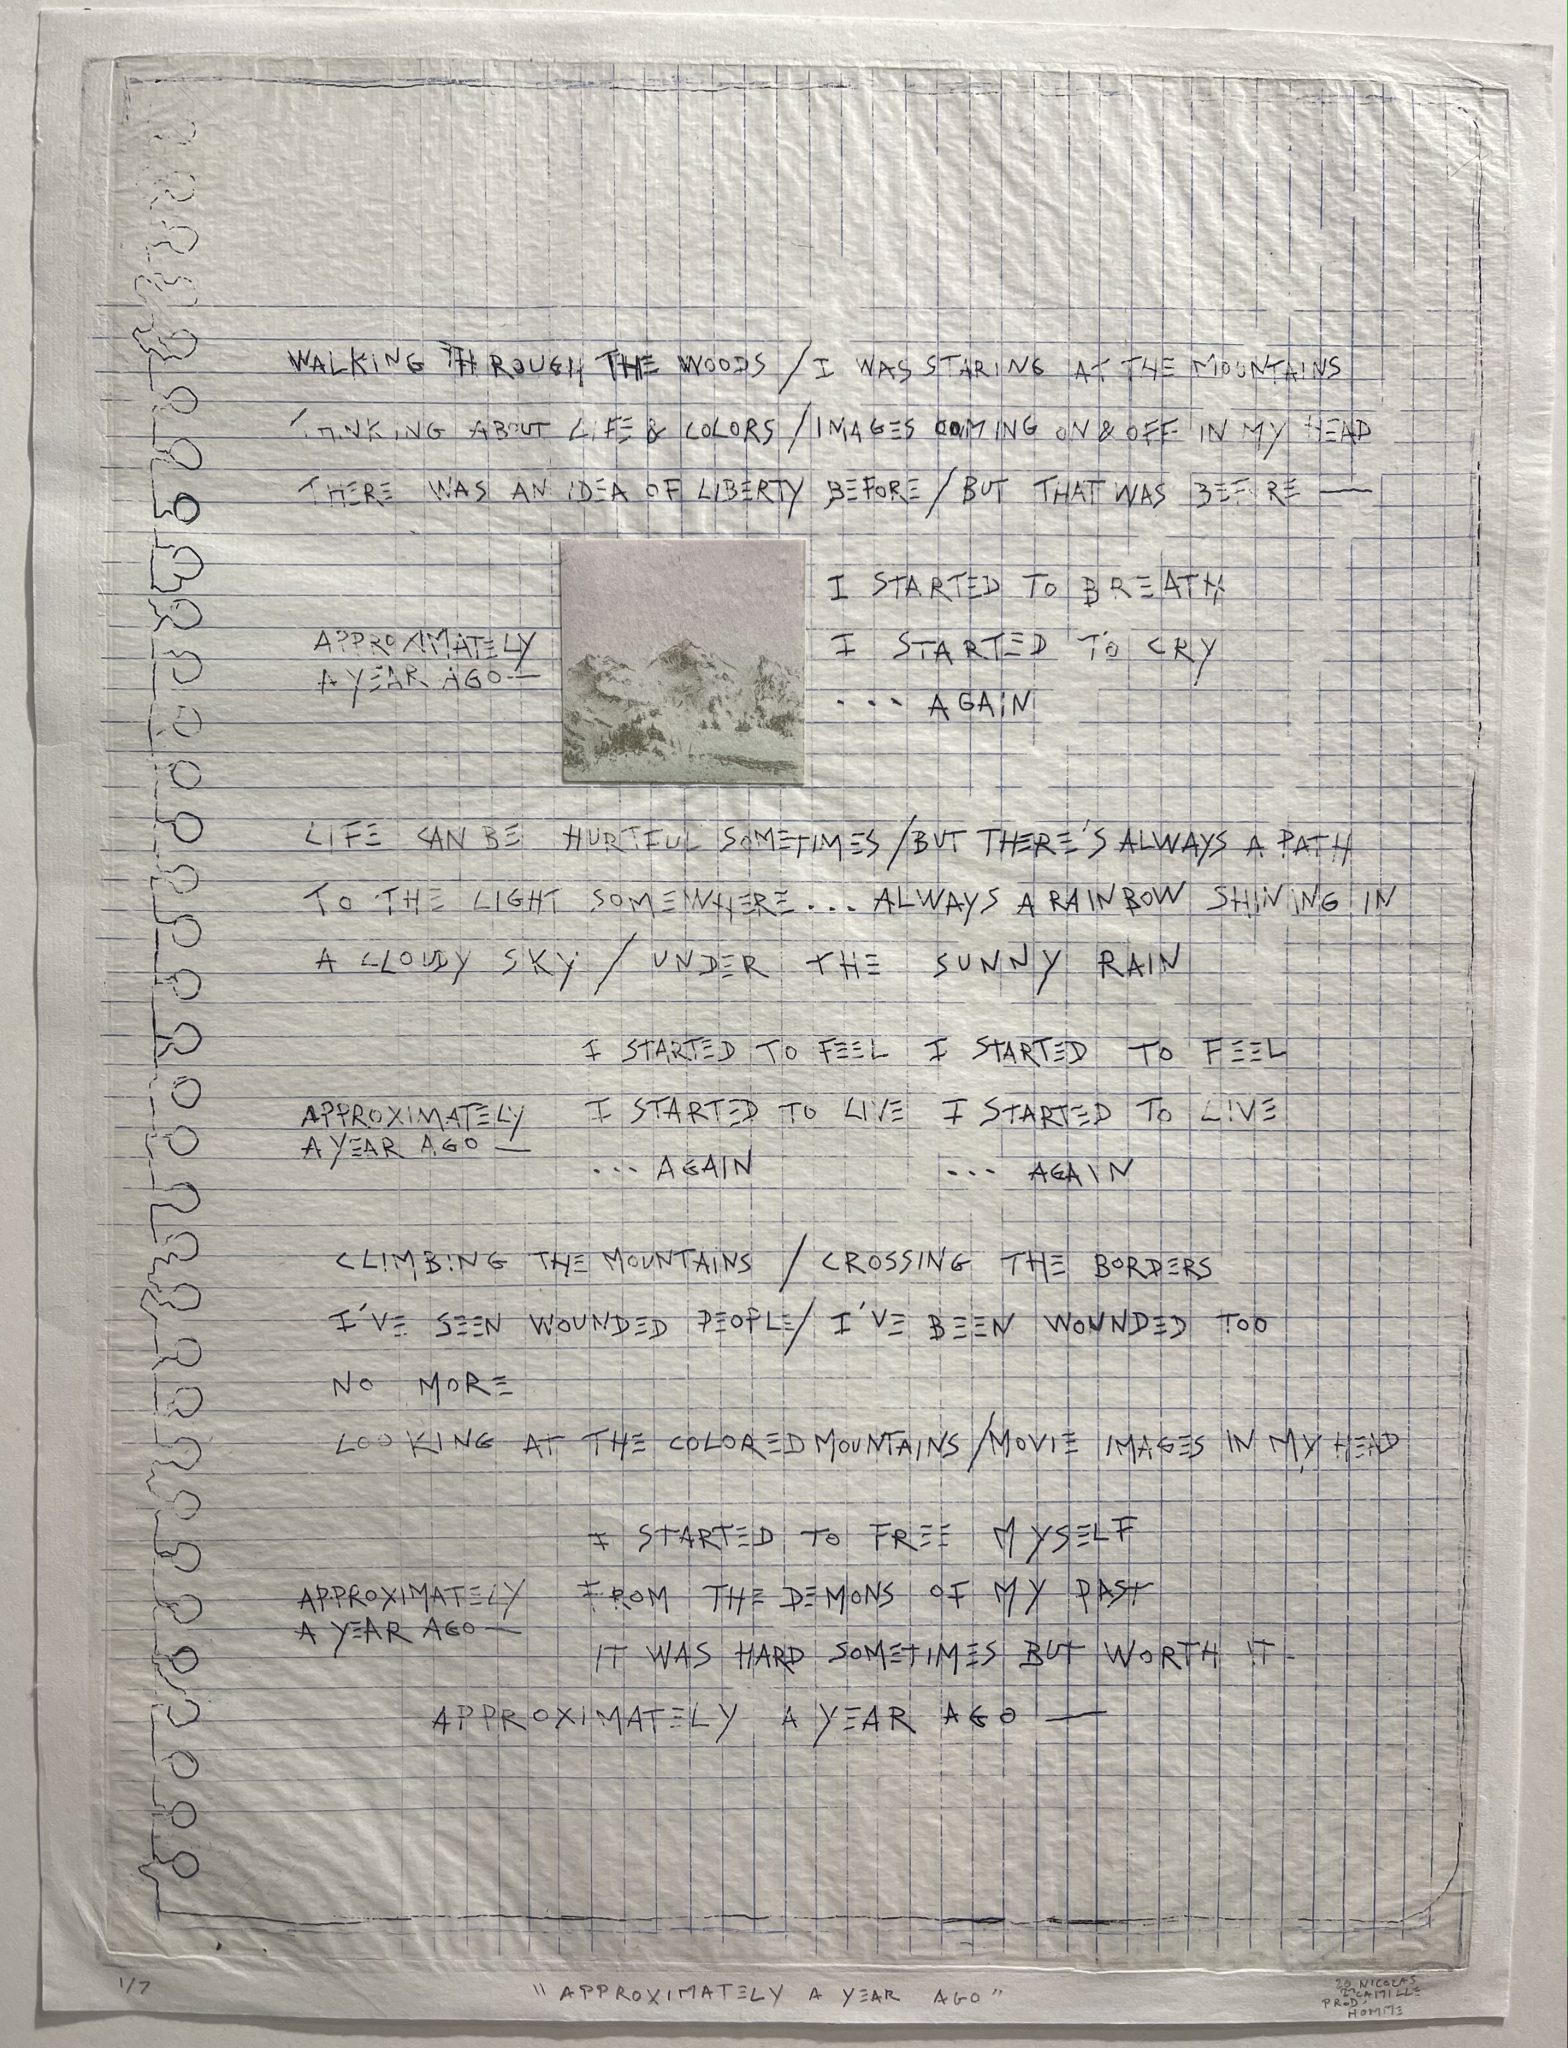 WALKING THROUGH THE WOODS / I WAS STARING AT THE MOUNTAINS
THINKING ABOUT LIFE & COLORS / IMAGES COMING ON & OFF IN MY HEAD
THERE WAS AN IDEA OF LIBERTY BEFORE / BUT THAT WAS BEFORE —
I STARTED TO BREATH
APPROXIMATELY
A YEAR AGO —
I STARTED TO CRY
... AGAIN
LIFE CAN BE HURTFUL SOMETIMES / BUT THERE'S ALWAYS A PATH
TO THE LIGHT SOMEWHERE ... ALWAYS A RAINBOW SHINING IN
A CLOUDY SKY / UNDER THE SUNNY RAIN
I STARTED TO FEEL I STARTED TO FEEL
APPROXIMATELY
A YEAR AGO —
I STARTED TO LIVE I STARTED TO LIVE
... AGAIN ... AGAIN
CLIMBING THE MOUNTAINS / CROSSING THE BORDERS
I'VE SEEN WOUNDED PEOPLE / I'VE BEEN WOUNDED TOO
NO MORE
LOOKING AT THE COLORED MOUNTAINS / MOVIE IMAGES IN MY HEAD
I STARTED TO FREE MYSELF
APPROXIMATELY
A YEAR AGO —
FROM THE DEMONS OF MY PAST
IT WAS HARD SOMETIMES BUT WORTH IT -
APPROXIMATELY A YEAR AGO —
1/7
"APPROXIMATELY A YEAR AGO"
20 NICOLAS
22 CAMILLE
PROD'
HOMME